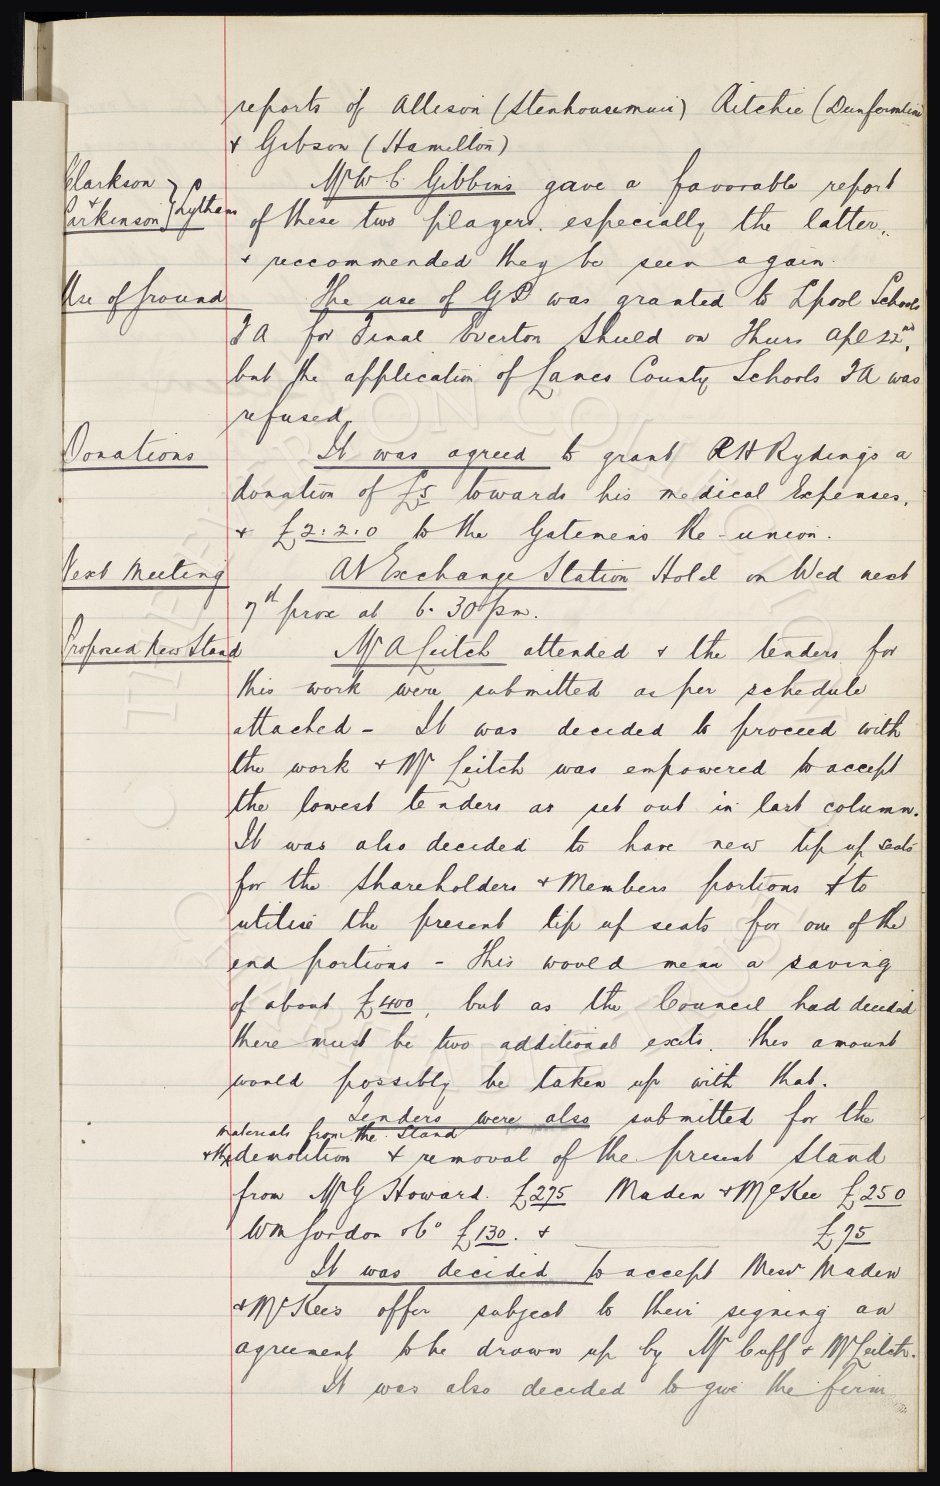 reports of Allison (Stenhousemuir) Ritchie (Dunfermline
& Gibson (Hamilton)
Clarkson
&
Parkinson } Lytham
Mr W C Gibbins gave a favorable report
of these two players, especially the latter,
& reccommended they be seen again.
Use of Ground
The use of G P was granted to Lpool Schools
F A for Final Everton Shield on Thurs Apl 22nd,
but the application of Lancs County Schools F A was
refused.
Donations
It was agreed to grant R H Rydings a
donation of £5 towards his medical Expenses,
& £2:2:0 to the Gatemens Re-union.
Next Meeting
At Exchange Station Hotel on Wed next
7th prox at 6.30 pm.
Proposed New Stand
Mr A Leitch attended & the tenders for
this work were submitted as per schedule
attached - It was decided to proceed with
the work & Mr Leitch was empowered to accept
the lowest tenders as set out in last column.
It was also decided to have new tip up seats
for the Shareholders & Members portions & to
utilise the present tip up seats for one of the
end portions - This would mean a saving
of about £400, but as the Council had decided
there must be two additional exits, this amount
would possibly be taken up with that.
Tenders were also submitted for the
materials from the Stand
& the demolition & removal of the present Stand
from Mr G Howard. £275 Maden & McKee £250
Wm Gordon & Co £130. & £75
It was decided to accept Messrs Maden
& McKees offer subject to their signing an
agreement to be drawn up by Mr Cuff & Mr Leitch.
It was also decided to give the firm
THE EVERTON COLLECTION
CHARITABLE TRUST